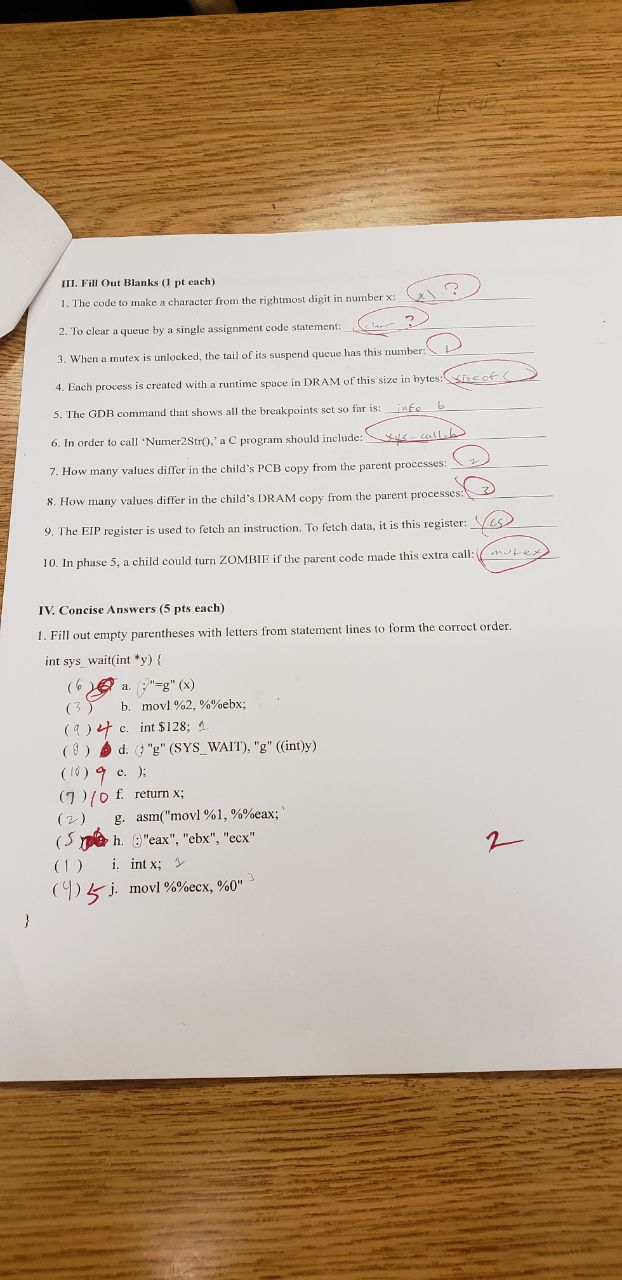 III. Fill Out Blanks (1 pt each)
1. The code to make a character from the rightmost digit in number x: x\ ?
2. To clear a queue by a single assignment code statement: clear ?
3. When a mutex is unlocked, the tail of its suspend queue has this number: 1
4. Each process is created with a runtime space in DRAM of this size in bytes: sizeof(
5. The GDB command that shows all the breakpoints set so far is: info b
6. In order to call 'Numer2Str(),' a C program should include: sys-call.h
7. How many values differ in the child's PCB copy from the parent processes: 2
8. How many values differ in the child's DRAM copy from the parent processes: 3
9. The EIP register is used to fetch an instruction. To fetch data, it is this register: CS
10. In phase 5, a child could turn ZOMBIE if the parent code made this extra call: mutex
IV. Concise Answers (5 pts each)
1. Fill out empty parentheses with letters from statement lines to form the correct order.
int sys_wait(int *y) {
(6) a. :"=g" (x)
(3) b. movl %2, %%ebx;
(9) 4 c. int $128; 1
(8) d. : "g" (SYS_WAIT), "g" ((int)y)
(10) 9 e. );
(7) 10 f. return x;
(2) g. asm("movl %1, %%eax;
(5 h. :"eax", "ebx", "ecx"
2
(1) i. int x; 2
(4) 5 j. movl %%ecx, %0" 3
}